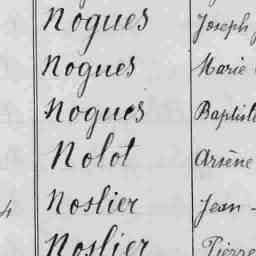 Nogues Joseph
Nogues Marie
Nogues Baptiste
Nolot Arsène
Noslier Jean -
Noslier Pierre